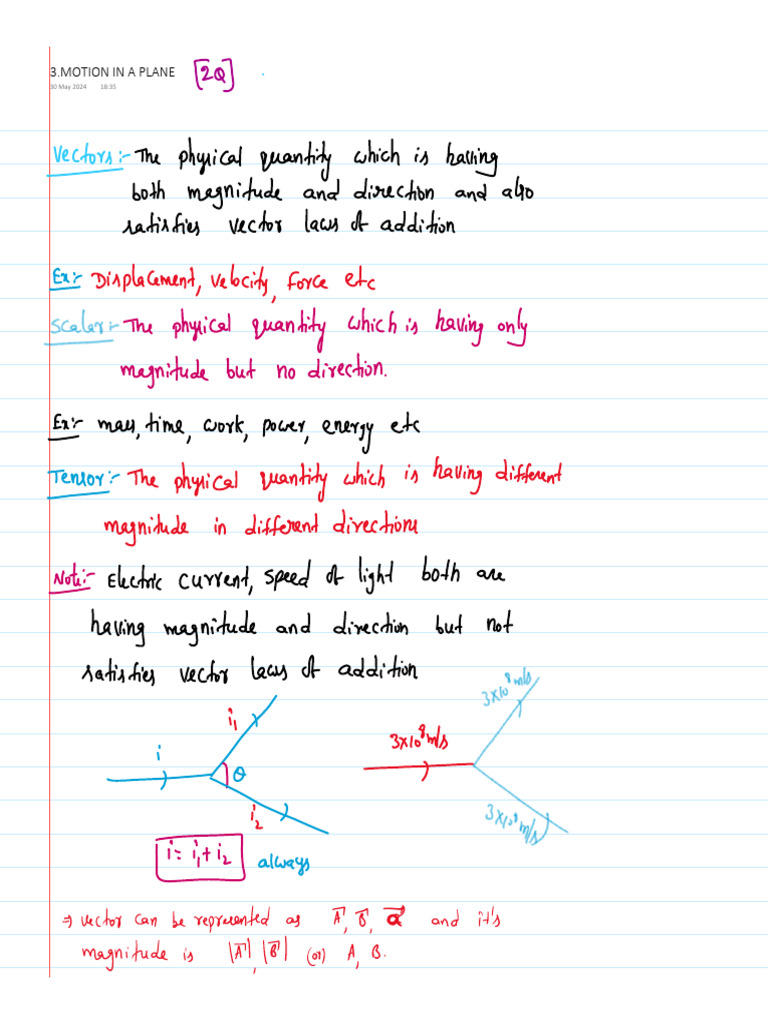 3.MOTION IN A PLANE [2Q]
30 May 2024 18:35
Vectors:- The physical quantity which is having
both magnitude and direction and also
satisfies vector laws of addition
Ex:- Displacement, velocity, force etc
Scalar:- The physical quantity which is having only
magnitude but no direction.
Ex:- mass, time, work, power, energy etc
Tensor:- The physical quantity which is having different
magnitude in different directions
Note:- Electric current, speed of light both are
having magnitude and direction but not
satisfies vector laws of addition
i i₁ θ i₂
3×10⁸m/s 3×10⁸m/s 3×10⁸m/s
i = i₁ + i₂ always
⇒ vector can be represented as A⃗, B⃗, a⃗ and it's
magnitude is |A⃗|, |B⃗| (or) A, B.